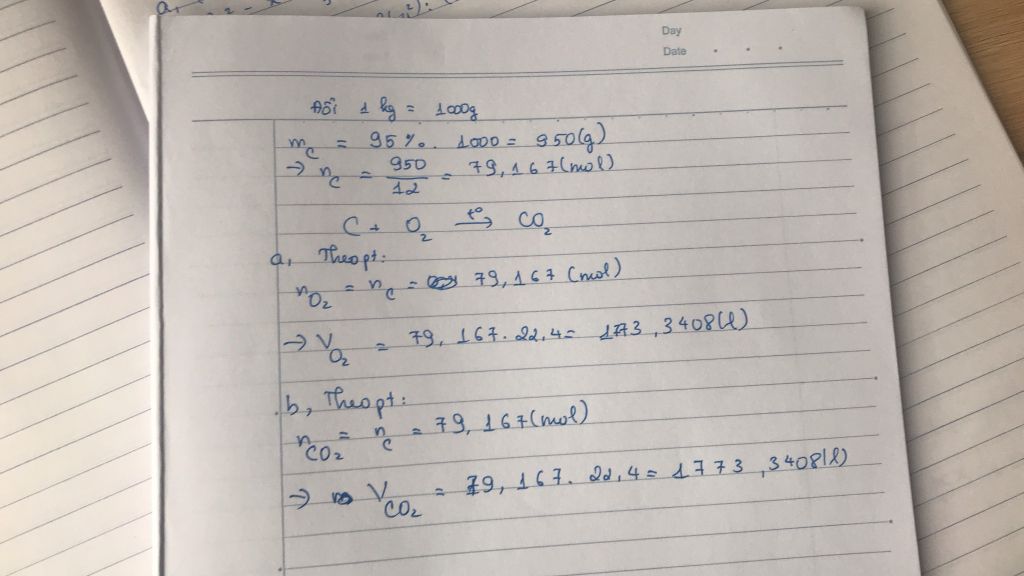 Day
Date
Đổi 1 kg = 1000g
m_C = 95%. 1000 = 950(g)
→ n_C = 950/12 = 79,167(mol)
C + O₂ -t°→ CO₂
a, Theo pt:
n_O₂ = n_C = 79,167 (mol)
→ V_O₂ = 79,167. 22,4 = 1773,3408(l)
b, Theo pt:
n_CO₂ = n_C = 79,167(mol)
→ V_CO₂ = 79,167. 22,4 = 1773,3408(l)